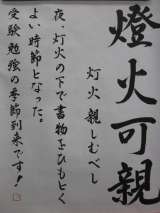 燈火可親
灯火親しむべし
夜、灯火の下で書物をひもとく
よい時節となった。
受験勉強の季節到来です!